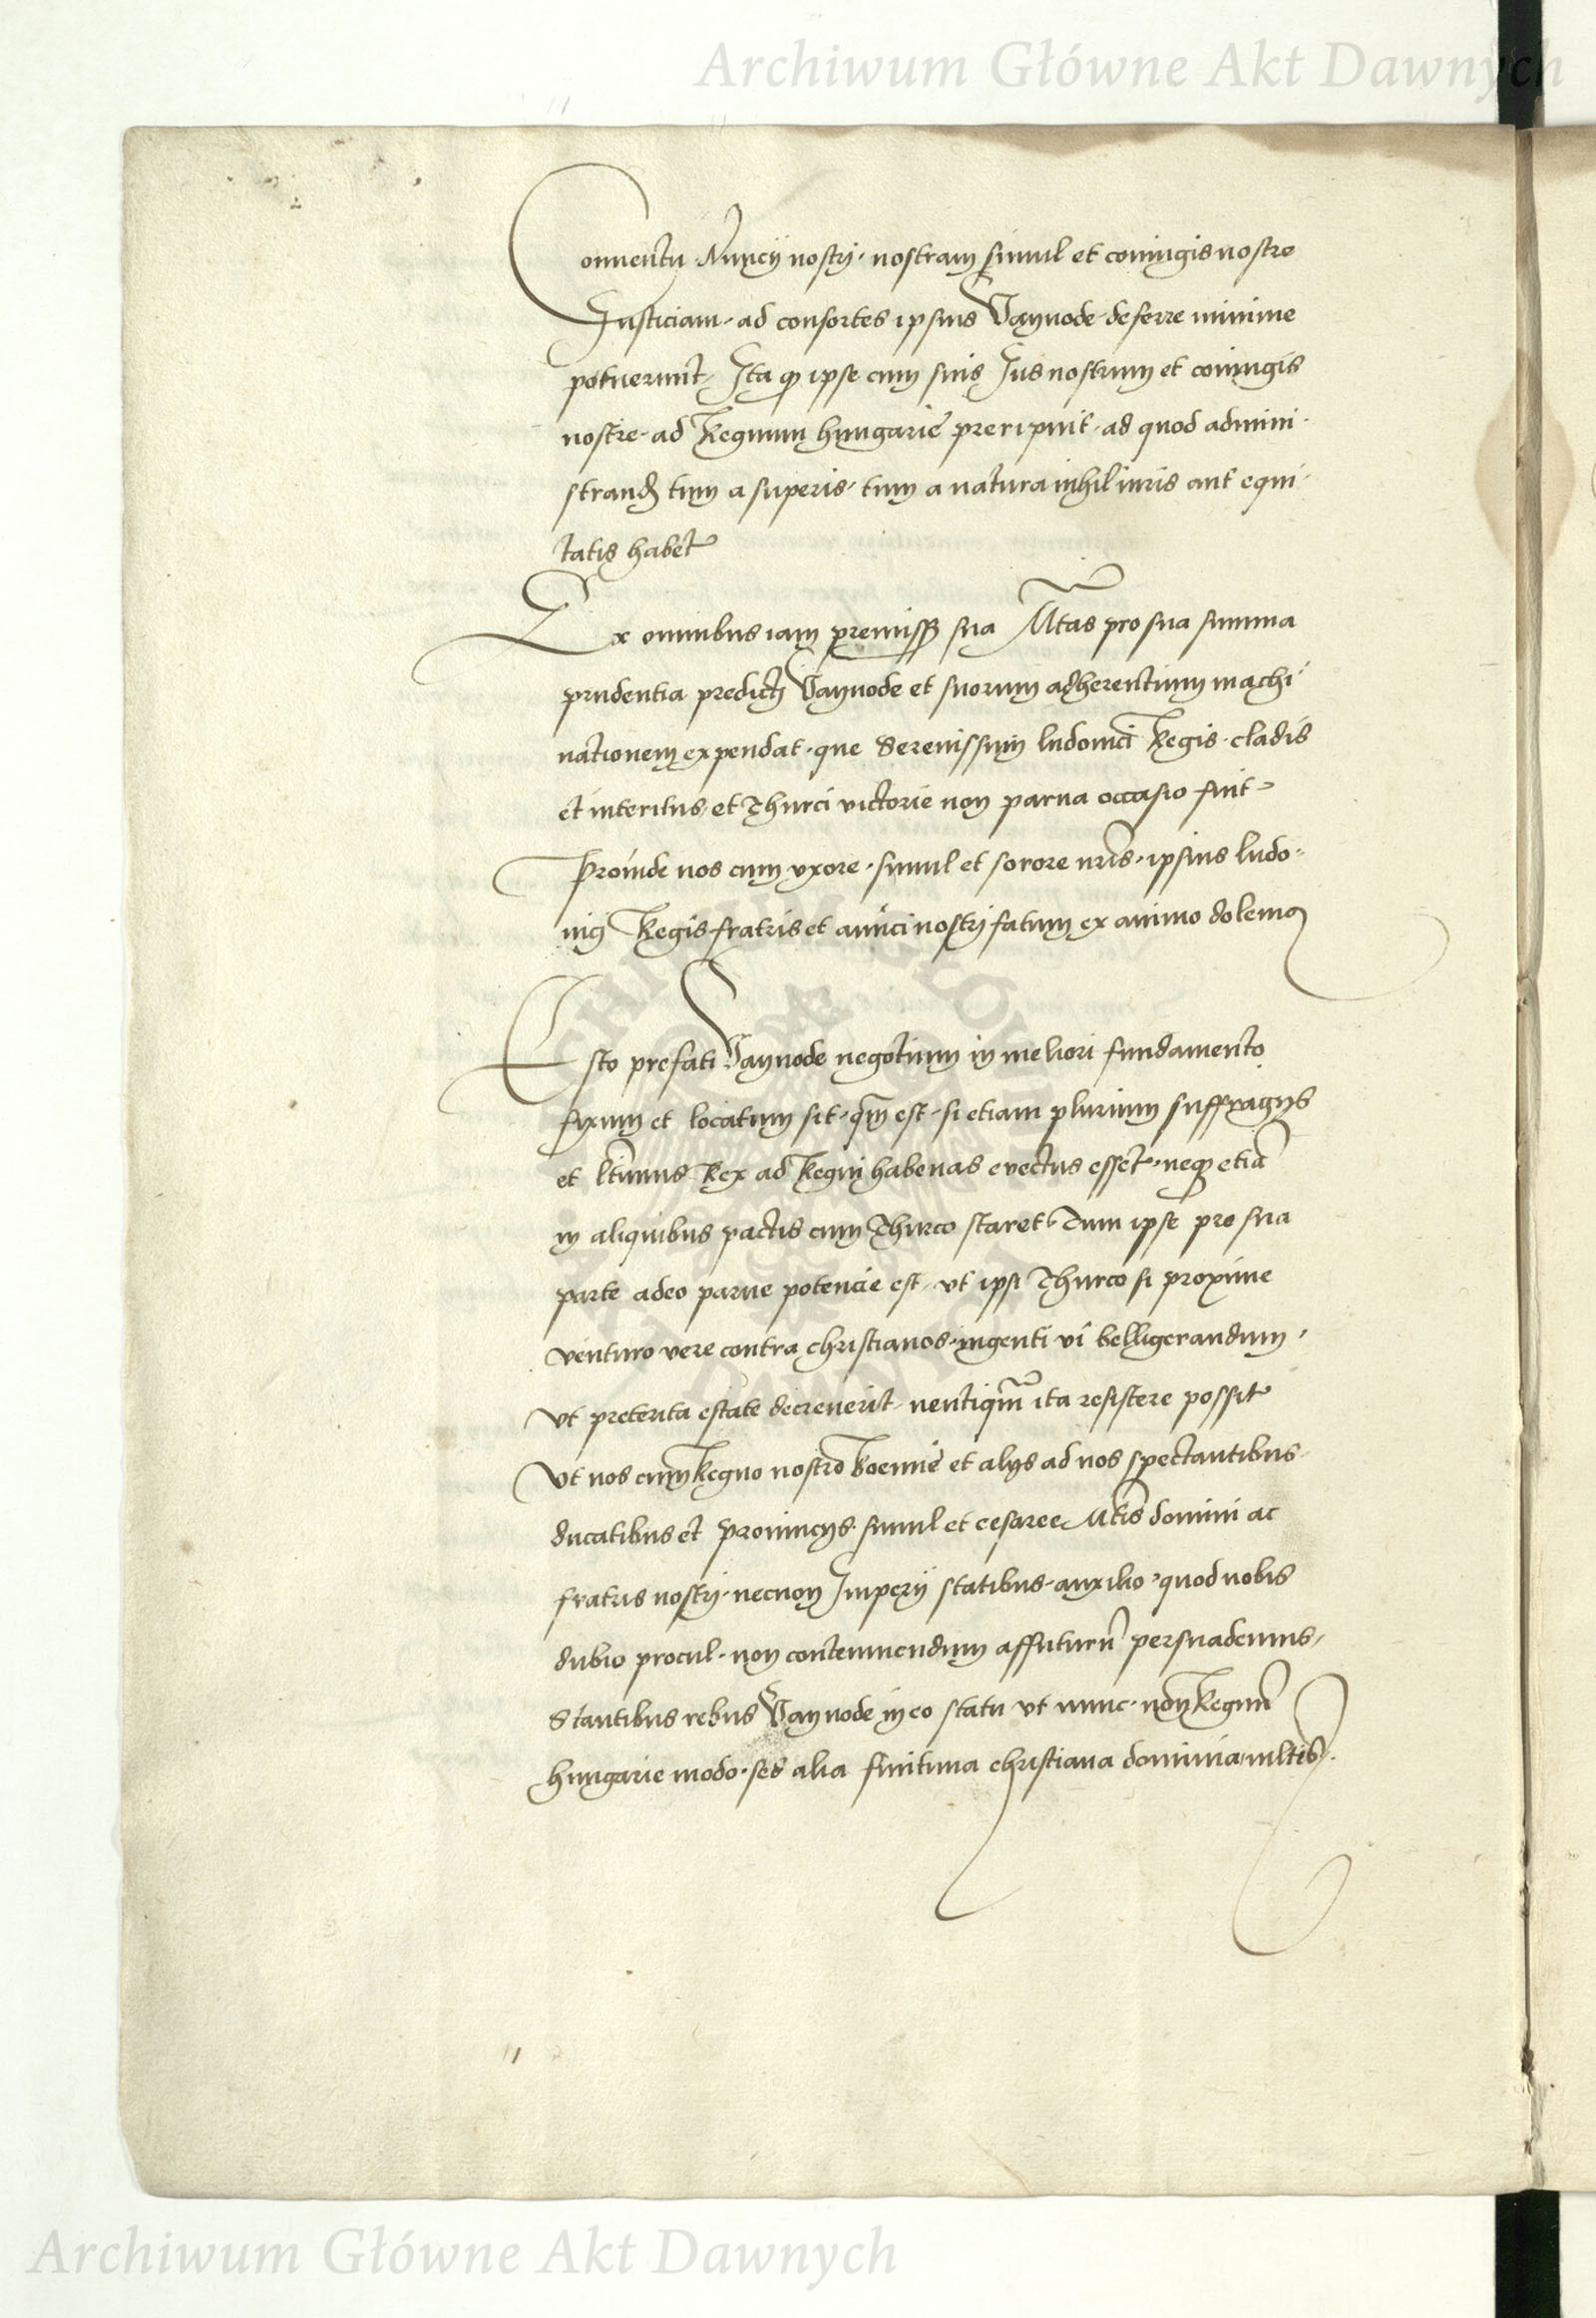 Archiwum Główne Akt Dawnych
Conuentu Nuncij nostri, nostram simul et coniugis nostre
Justiciam, ad consortes ipsius Vaynode deferre minime
potuerunt, Ita q ipse cum suis Jus nostrum et coniugis
nostre, ad Regnum hungarie preripuit, ad quod admini-
strand tum a superis, tum a natura nihil iuris aut equi-
tatis habet
Ex omnibus iam premiss sua Mtas pro sua summa
prudentia predicti Vaynode et suorum adherentium machi-
nationem expendat, que Serenissimi ludouici Regis cladis
et interitus, et Thurci victorie non parua occasio fuit
Proinde nos cum vxore, simul et sorore nris, ipsius ludo-
uici Regis fratris et amici nostri fatum ex animo dolemus
Esto prefati Vaynode negotium in meliori fundamento
fixum et locatum sit, qm est, si etiam plurium suffragijs
et ltimus Rex ad Regni habenas evectus esset, neq etia
in aliquibus pactis cum Thurco staret Tum ipse pro sua
parte adeo parue potencie est, vt ipsi Thurco si proxime
venturo vere contra christianos, ingenti vi belligerandum,
vt preterita estate decreuerit, neutiqm ita resistere possit
Vt nos cum Regno nostro Boemie et alijs ad nos spectantibus
ducatibus et prouincijs, simul et cesaree Mtis domini ac
fratris nostri, necnon Imperij statibus, auxilio, quod nobis
dubio procul, non contemnendum affuturu persuademus,
Stantibus rebus Vaynode in eo statu vt nunc, non Regnum
hungarie modo, sed alia finitima christiana dominia multis
Archiwum Główne Akt Dawnych